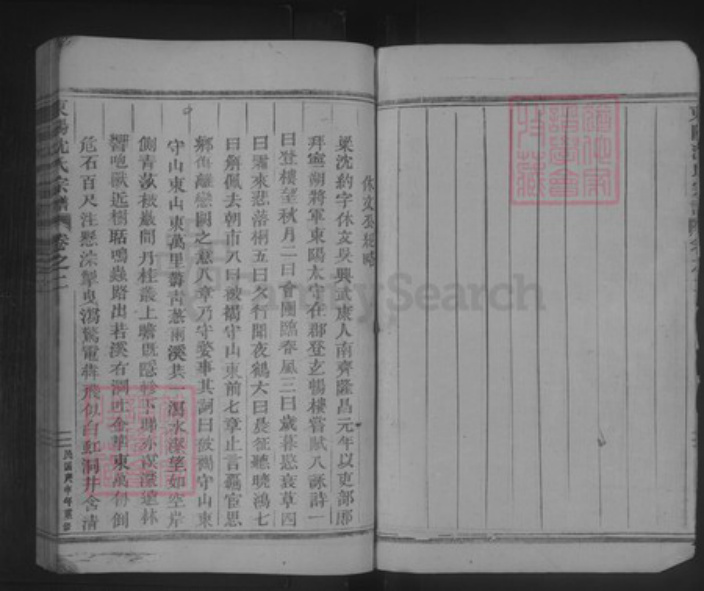 東陽沈氏宗譜 卷之
休文公紀略
梁沈約字休文吳興武康人南齊隆昌元年以吏部郎
拜寧朔將軍東陽太守在郡登玄暢樓嘗賦八詠詩一
曰登樓望秋月二曰會圃臨春風三曰歲暮愍衰草四
曰霜來悲落桐五曰夕行聞夜鶴六曰晨征聽曉鴻七
曰解佩去朝市八曰被褐守山東前七章止言羈宦思
鄉 離戀闕之 八章乃守婺事其詞曰被褐守山東
守山東山東萬里鬱青蔥兩溪共一瀉水潔望如空岸
側青莎被巖間丹桂叢上瞻既隱軫下睇亦溟濛遠林
響咆獸近樹聒鳴蟲路出若溪右澗吐金華東萬仞倒
危石百尺注懸潈掣曳瀉驚電 飛似白虹洞井含清
東陽沈氏宗譜 卷之二
民國 年重修
道他家譜學會特藏
FamilySearch